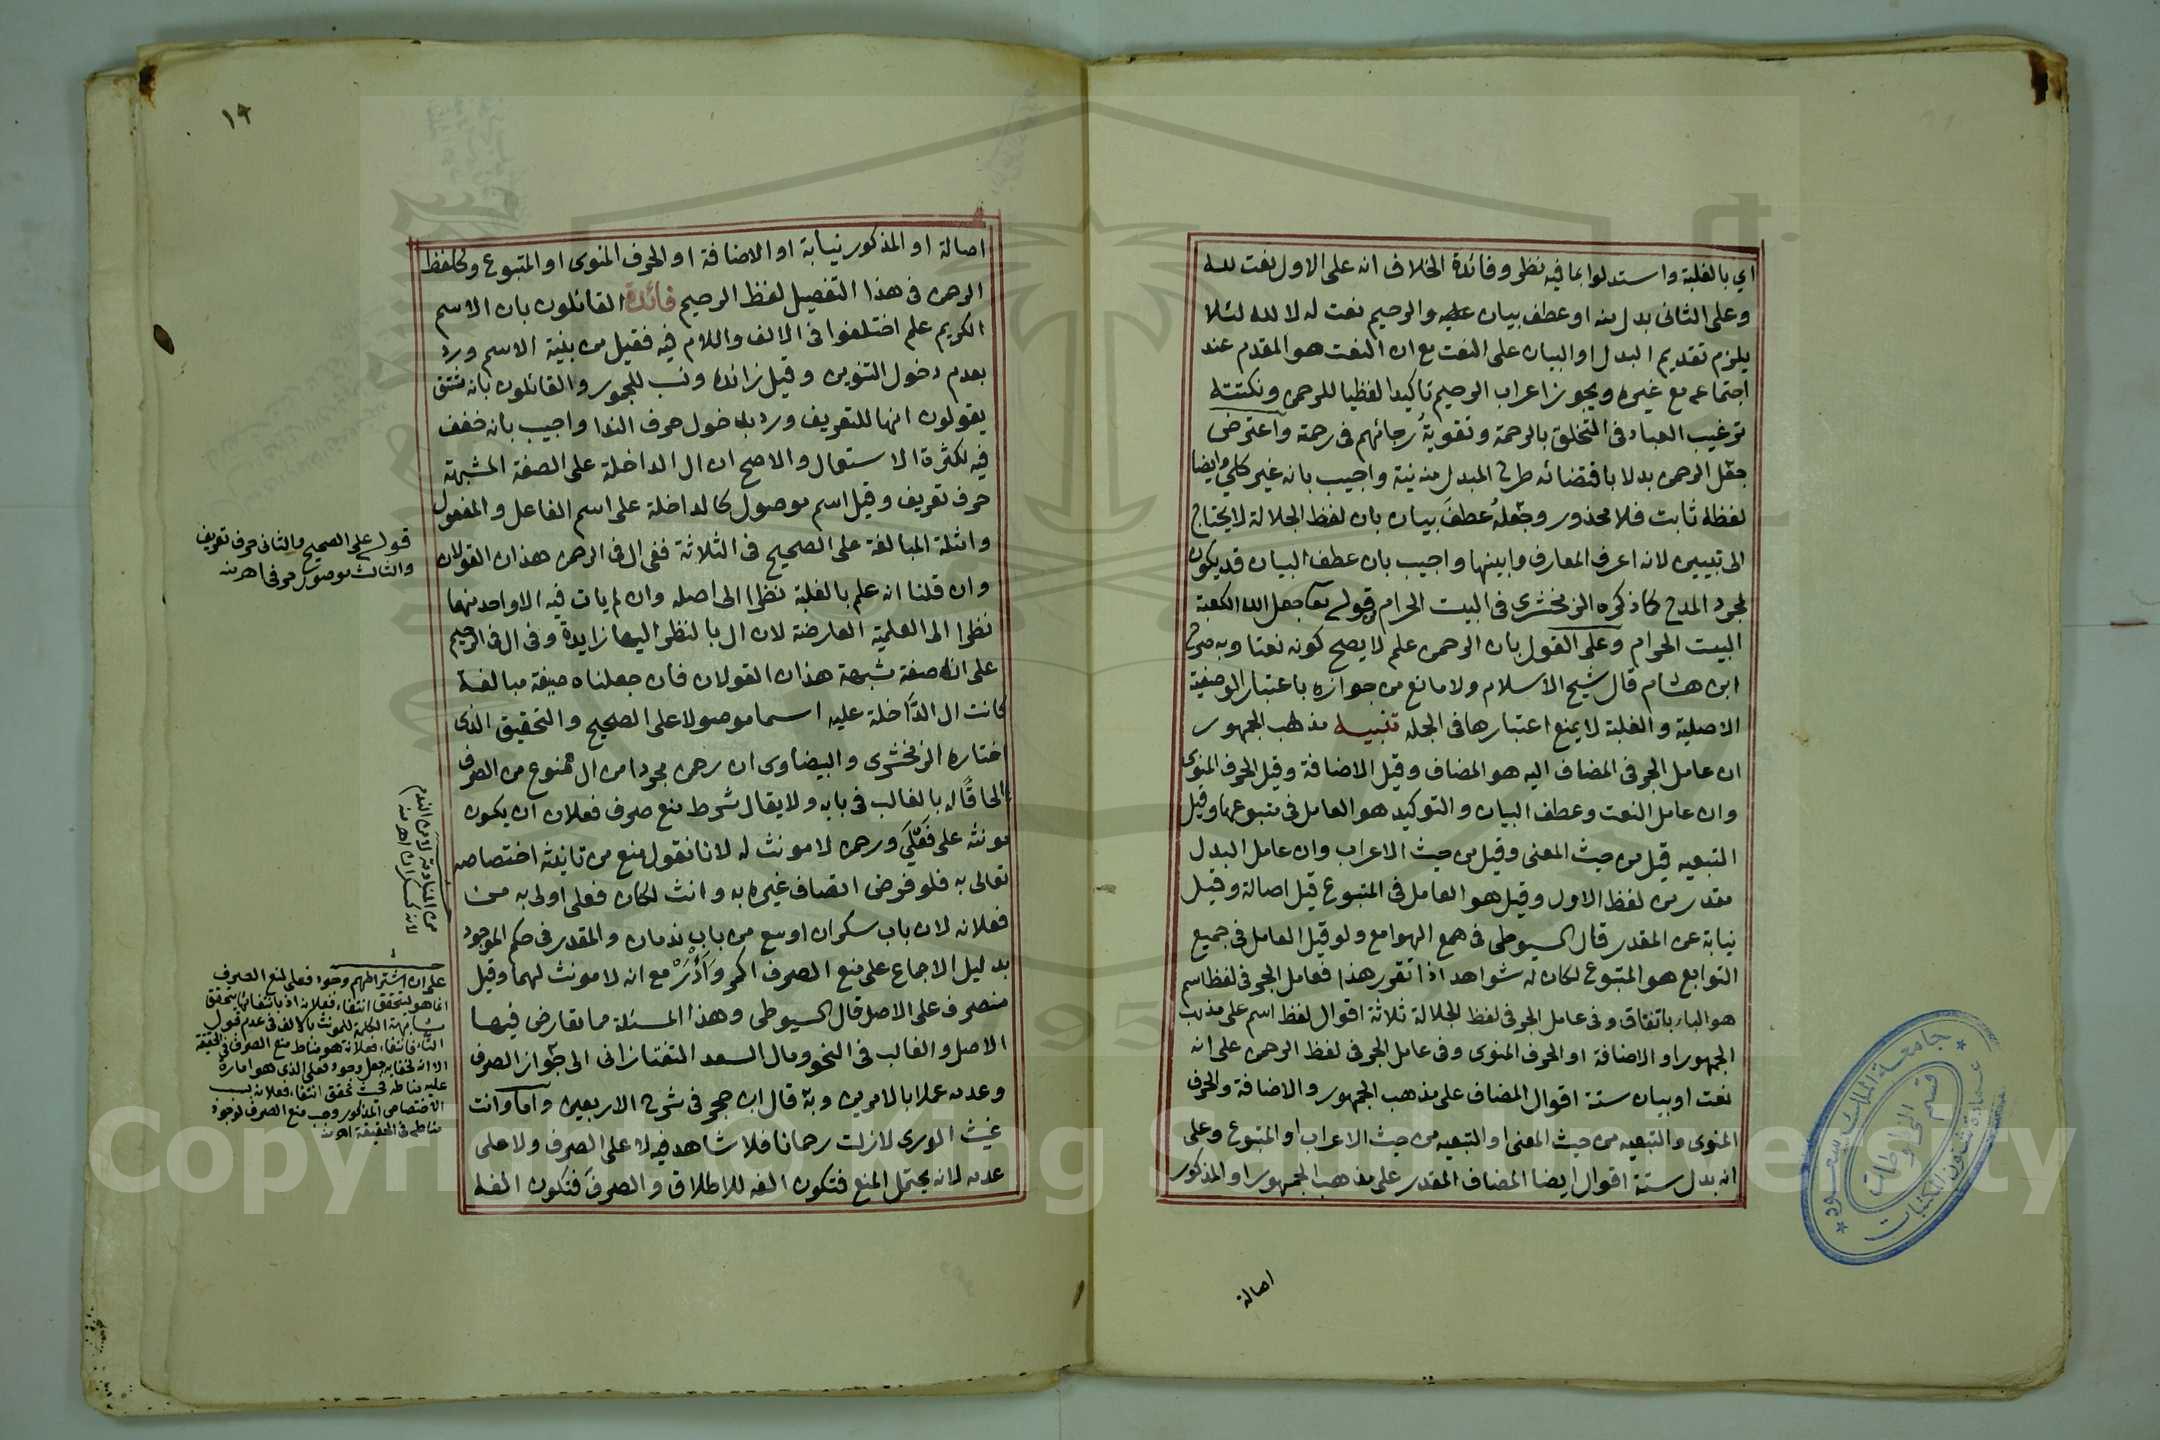 اي بالغلبة واستدلوا بما فيه نظر وفائدة الخلاف انه على الاول نعت لله
وعلى الثانى بدل منه او عطف بيان عليه والرحيم نعت له لا لله لئلا
يلزم تقديم البدل او البيان على النعت مع ان النعت هو المقدم عند
اجتماعه مع غيره ويجوز اعراب الرحيم تاكيدا لفظيا للرحمن ونكتته
ترغيب العباد فى التخلق بالرحمة وتقوية رجائهم فى رحمة واعترض
جعل الرحمن بدلا باقتضائه طرح المبدل منه نية واجيب بانه غير كلي وايضا
لفظه ثابت فلا محذور وجعله عطف بيان بان لفظ الجلالة لا يحتاج
الى تبيين لانه اعرف المعارف وابينها واجيب بان عطف البيان قد يكون
لمجرد المدح كما ذكره الزمخشرى فى البيت الحرام من قوله تعا جعل الله الكعبة
البيت الحرام وعلى القول بان الرحمن علم لا يصح كونه نعتا وبه صرح
ابن هشام قال شيخ الاسلام ولا مانع من جوازه باعتبار الوصفية
الاصلية والغلبة لا يمنع اعتبارها فى الجملة تنبيه مذهب الجمهور
ان عامل الجر فى المضاف اليه هو المضاف وقيل الاضافة وقيل الحرف المنوى
وان عامل النعت وعطف البيان والتوكيد هو العامل فى متبوعها وقيل
التبعيه قيل من حيث المعنى وقيل من حيث الاعراب وان عامل البدل
مقدر من لفظ الاول وقيل هو العامل فى المتبوع قيل اصالة وقيل
نيابة عن المقدر قال السيوطى فى همع الهوامع ولو قيل العامل فى جميع
التوابع هو المتبوع لكان له شواهد اذا تقرر هذا فعامل الجر فى لفظ اسم
هو الباء باتفاق وفى عامل الجر فى لفظ الجلالة ثلاثة اقوال لفظ اسم على مذهب
الجمهور او الاضافة او الحرف المنوى وفى عامل الجر فى لفظ الرحمن على انه
نعت او بيان ستة اقوال المضاف على مذهب الجمهور والاضافة والحرف
المنوى والتبعيه من حيث المعنى او التبعيه من حيث الاعراب او المتبوع وعلى
انه بدل ستة اقوال ايضا المضاف المقدر على مذهب الجمهور او المذكور
اصالة
جامعة الملك سعود
قسم المخطوطات
عمادة شئون المكتبات
١٩
اصالة او المذكور نيابة او الاضافة او الحرف المنوى او المتبوع وكلفظ
الرحمن فى هذا التفصيل لفظ الرحيم فائدة القائلون بان الاسم
الكريم علم اختلفوا فى الالف واللام فيه فقيل من بنية الاسم ورد
بعدم دخول التنوين وقيل زائدة ونسب للجمهور والقائلون بانه مشتق
يقولون انها للتعريف ورد بدخول حرف الندا واجيب بانه خفف
فيه لكثرة الاستعمال والاصح ان ال الداخلة على الصفة المشبهة
حرف تعريف وقيل اسم موصول كالداخلة على اسم الفاعل والمفعول
وامثلة المبالغة على الصحيح فى الثلاثة ففى ال فى الرحمن هذان القولان
وان قلنا انه علم بالغلبة نظرا الى اصله وان لم يات فيه الا واحد منهما
نظرا الى العلمية العارضة لان ال بالنظر اليها زايدة وفى ال فى الرحيم
على انه صفة مشبهة هذان القولان فان جعلناه صيغة مبالغة
كانت ال الداخلة عليه اسما موصولا على الصحيح والتحقيق الذى
اختاره الزمخشرى والبيضاوى ان رحمن مجردا من ال ممنوع من الصرف
الحاقا له بالغالب فى بابه ولا يقال شرط منع صرف فعلان ان يكون
مونثه على فعلى ورحمن لا مونث له لانا نقول منع من تانيثه اختصاصه
تعالى به فلو فرض اتصاف غيره به وانث لكان فعلى اولى به من
فعلانه لان باب سكران اوسع من باب ندمان والمقدر فى حكم الموجود
بدليل الاجماع على منع الصرف اكمر وآدر مع ان لا مونث لهما وقيل
منصرف على الاصل قال السيوطى وهذا المسئلة مما تعارض فيها
الاصل والغالب فى النحو ومال السعد التفتازانى الى جواز الصرف
وعدمه عملا بالامرين وبه قال ابن حجر فى شرح الاربعين واما وانت
غيث الورى لا زلت رحمانا فلا شاهد فيه لا على الصرف ولا على
عدمه لانه يحتمل المنع فتكون الفه للاطلاق والصرف فتكون الفه
قوله على الصحيح والثانى حرف تعريف
والثالث موصول حرفى اهـ منه
من المنادمة لا من الندم
لانه كسكران اهـ منه
على ان اشتراطهم وجود فعلى لمنع الصرف
انما هو ليتحقق انتفاء فعلانه اذ بانتفائها يتحقق
مشابهة الكلمة للمونث بالالف فى عدم قبول
التاء فانتفاء فعلانة هو مناط منع الصرف فى الحقيقة
الا انه لخفائه جعل وجود فعلى الذى هو امارة
عليه مناطه فحيث تحقق انتفاء فعلانه بسبب
الاختصاص المذكور وجب منع الصرف لوجود
مناطه فى الحقيقة اهـ منه
Copyright © King Saud University
1957